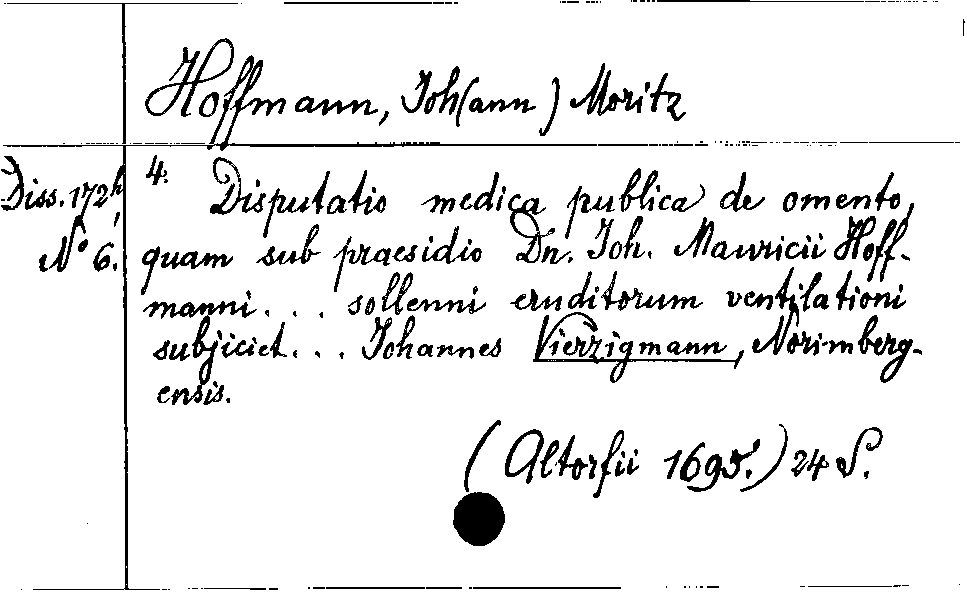 Hoffmann, Joh(ann) Moritz
Diss. 172h,
No 6.
4. Disputatio medica publica de omento,
quam sub praesidio Dn. Joh. Mauricii Hoff-
manni . . . sollenni eruditorum ventilationi
subjiciet . . . Johannes Vierzigmann, Norimberg-
ensis.
(Altorfii 1695.) 24 S.